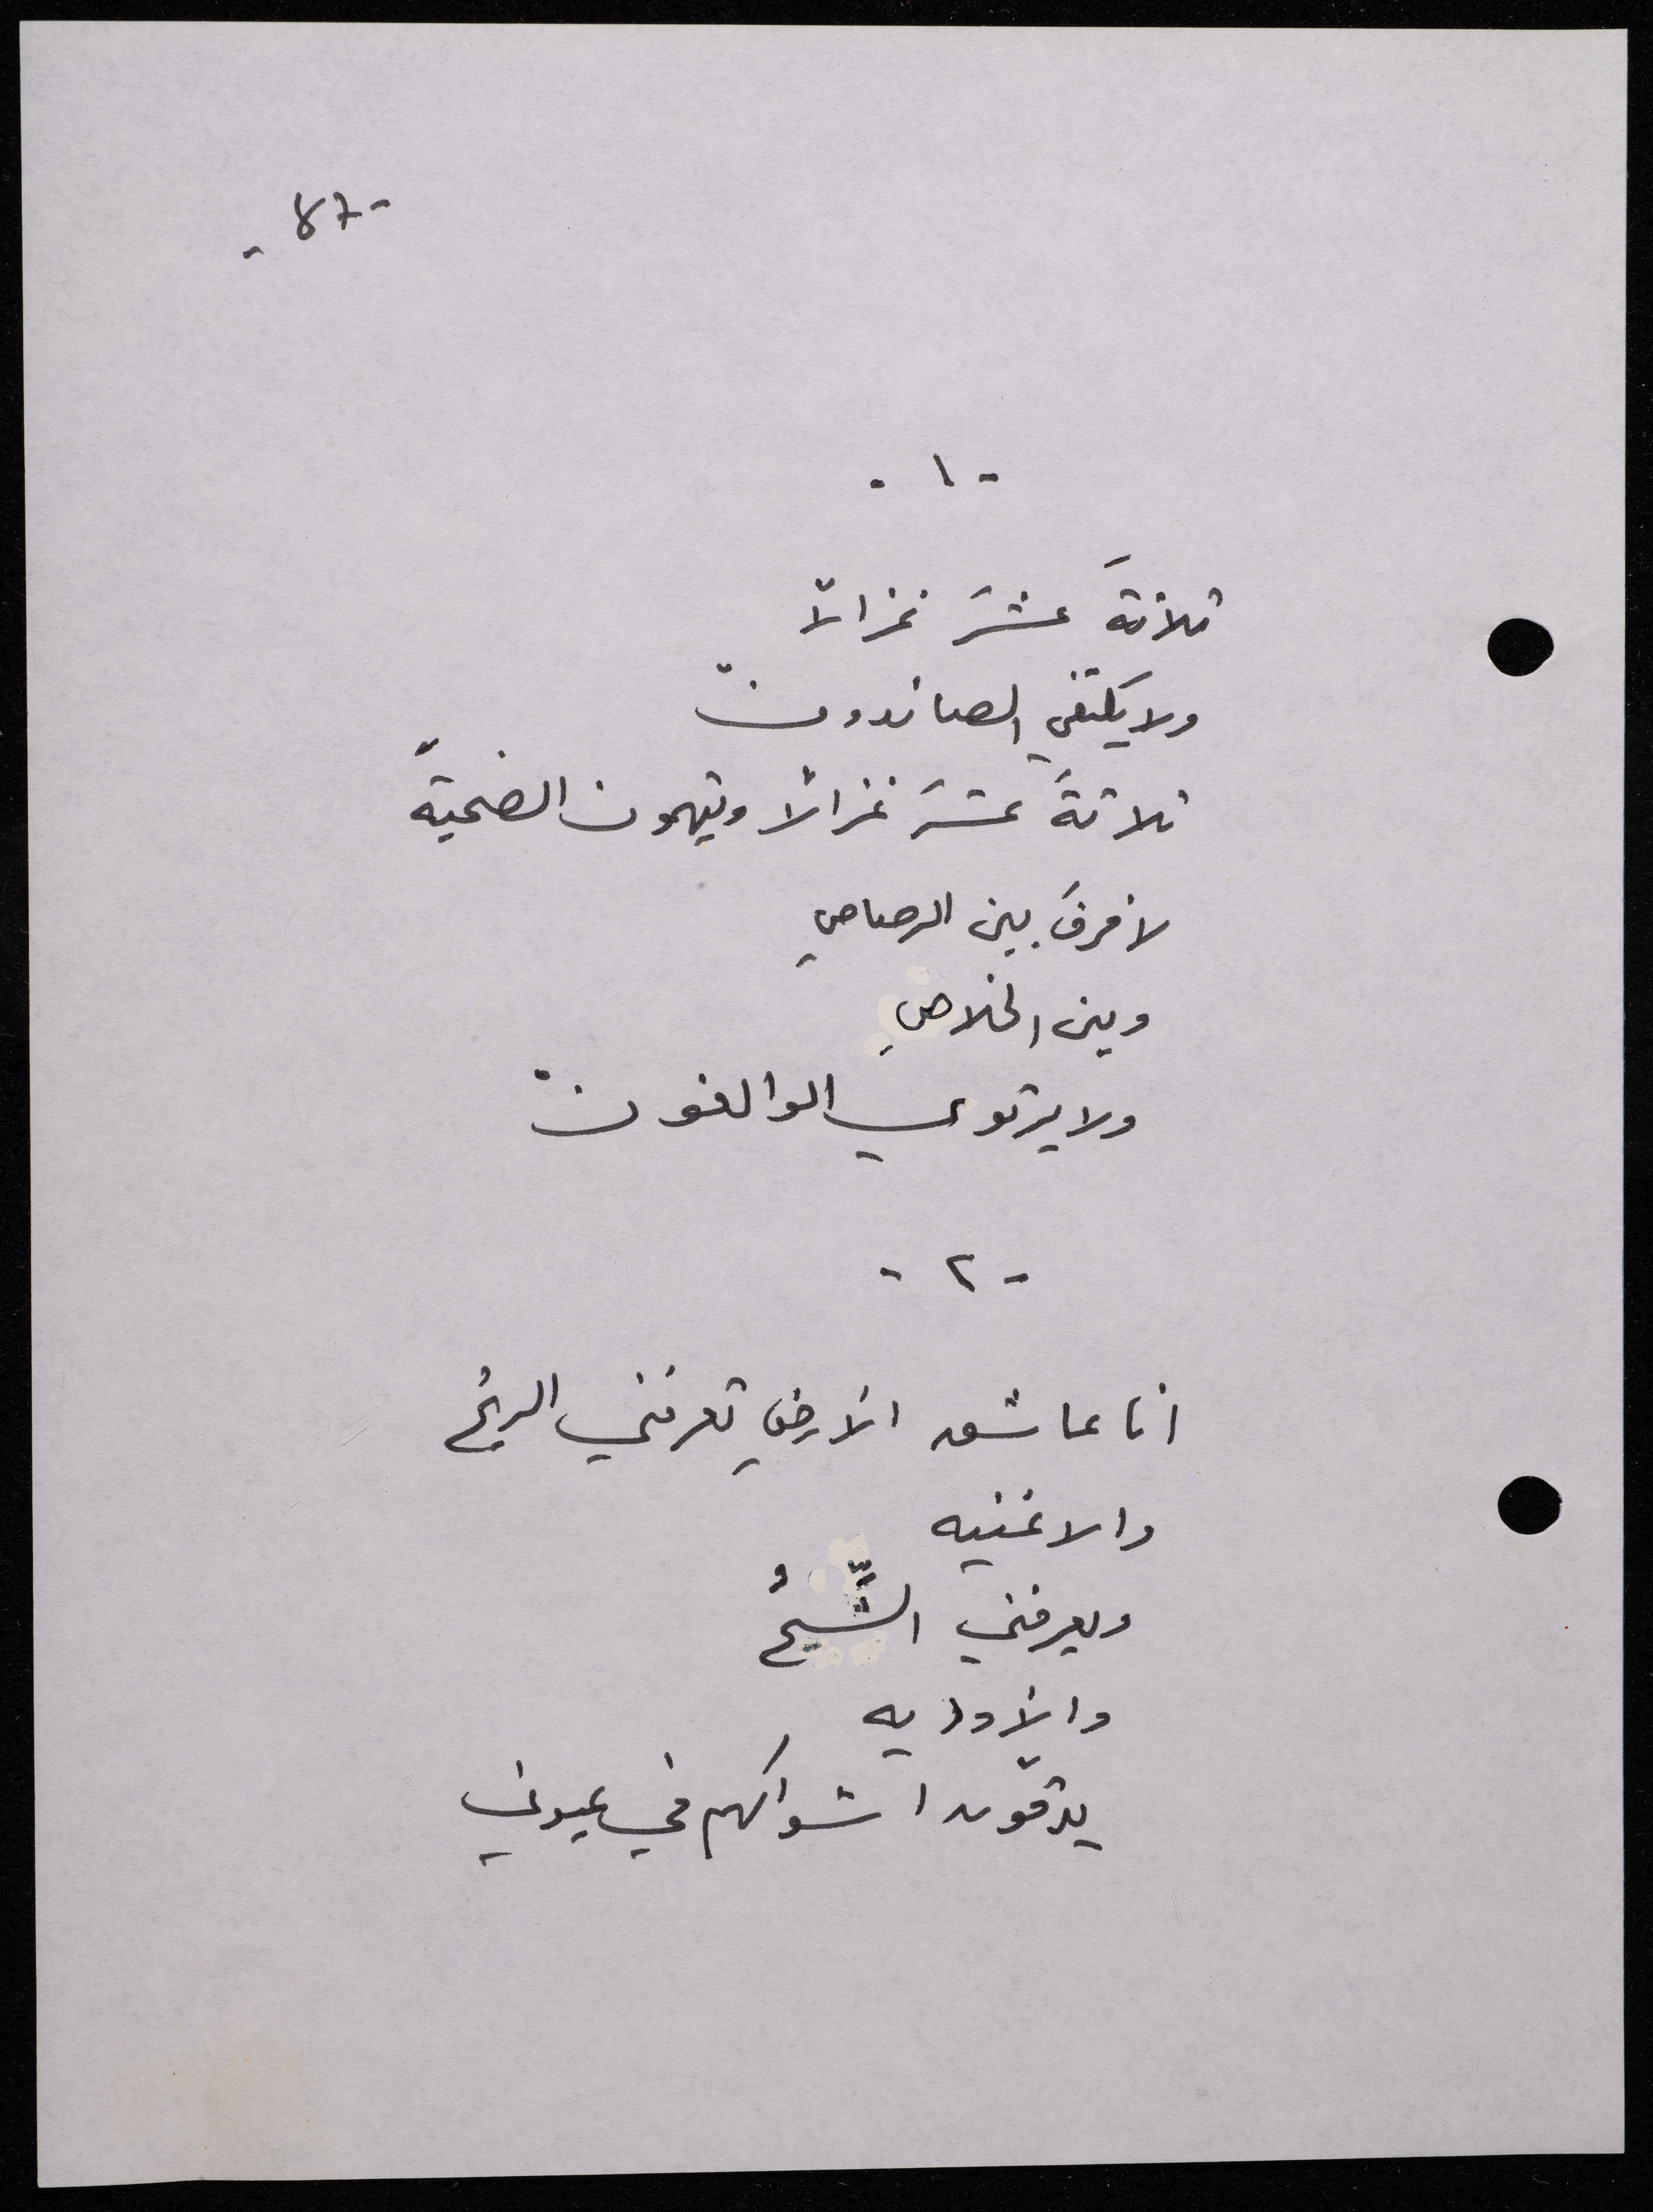 - ٤٦ -
- ١ -
ثلاثةَ عشرَ غزالاً
ولا يكتفي الصائدونْ
ثلاثةَ عشرَ غزالاً ويتهمون الضحيةَ
لا فرقَ بين الرصاصِ
وبين الخلاصِ
ولا يرتوي الوالغونْ
- ٢ -
انا عاشق الأرضِ تعرفني الريحُ
والاغنيه
ويعرفني الشِّيحُ
والأوديه
يدقّون اشواكهم في عيوني